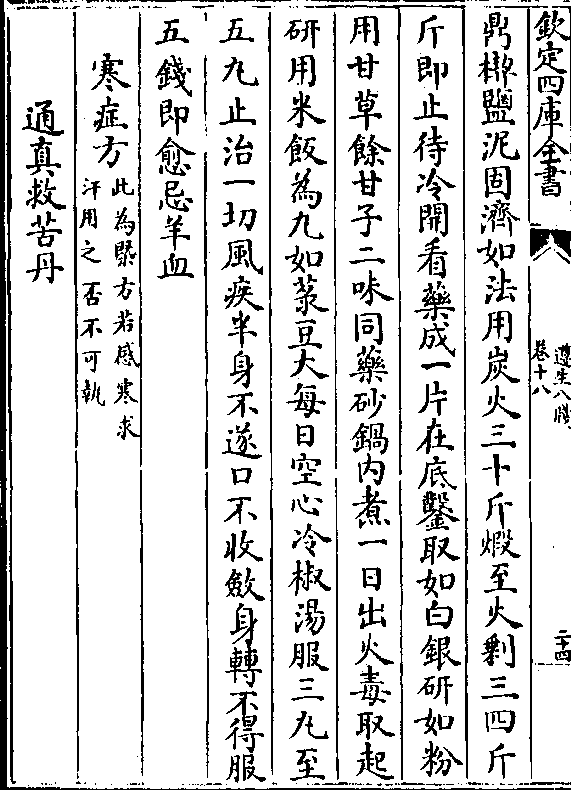 欽定四庫全書
遵生八牋
卷十八
二十四
鼎楔鹽泥固濟如法用炭火三十斤煅至火剩三四斤
斤即止待冷開看藥成一片在底鑿取如白銀研如粉
用甘草餘甘子二味同藥砂鍋内煮一日出火毒取起
研用米飯為丸如菉豆大每日空心冷椒湯服三丸至
五丸止治一切風疾半身不遂口不收斂身轉不得服
五錢即愈忌羊血
寒症方
此為槩方若感寒求
汗用之否不可執
通真救苦丹